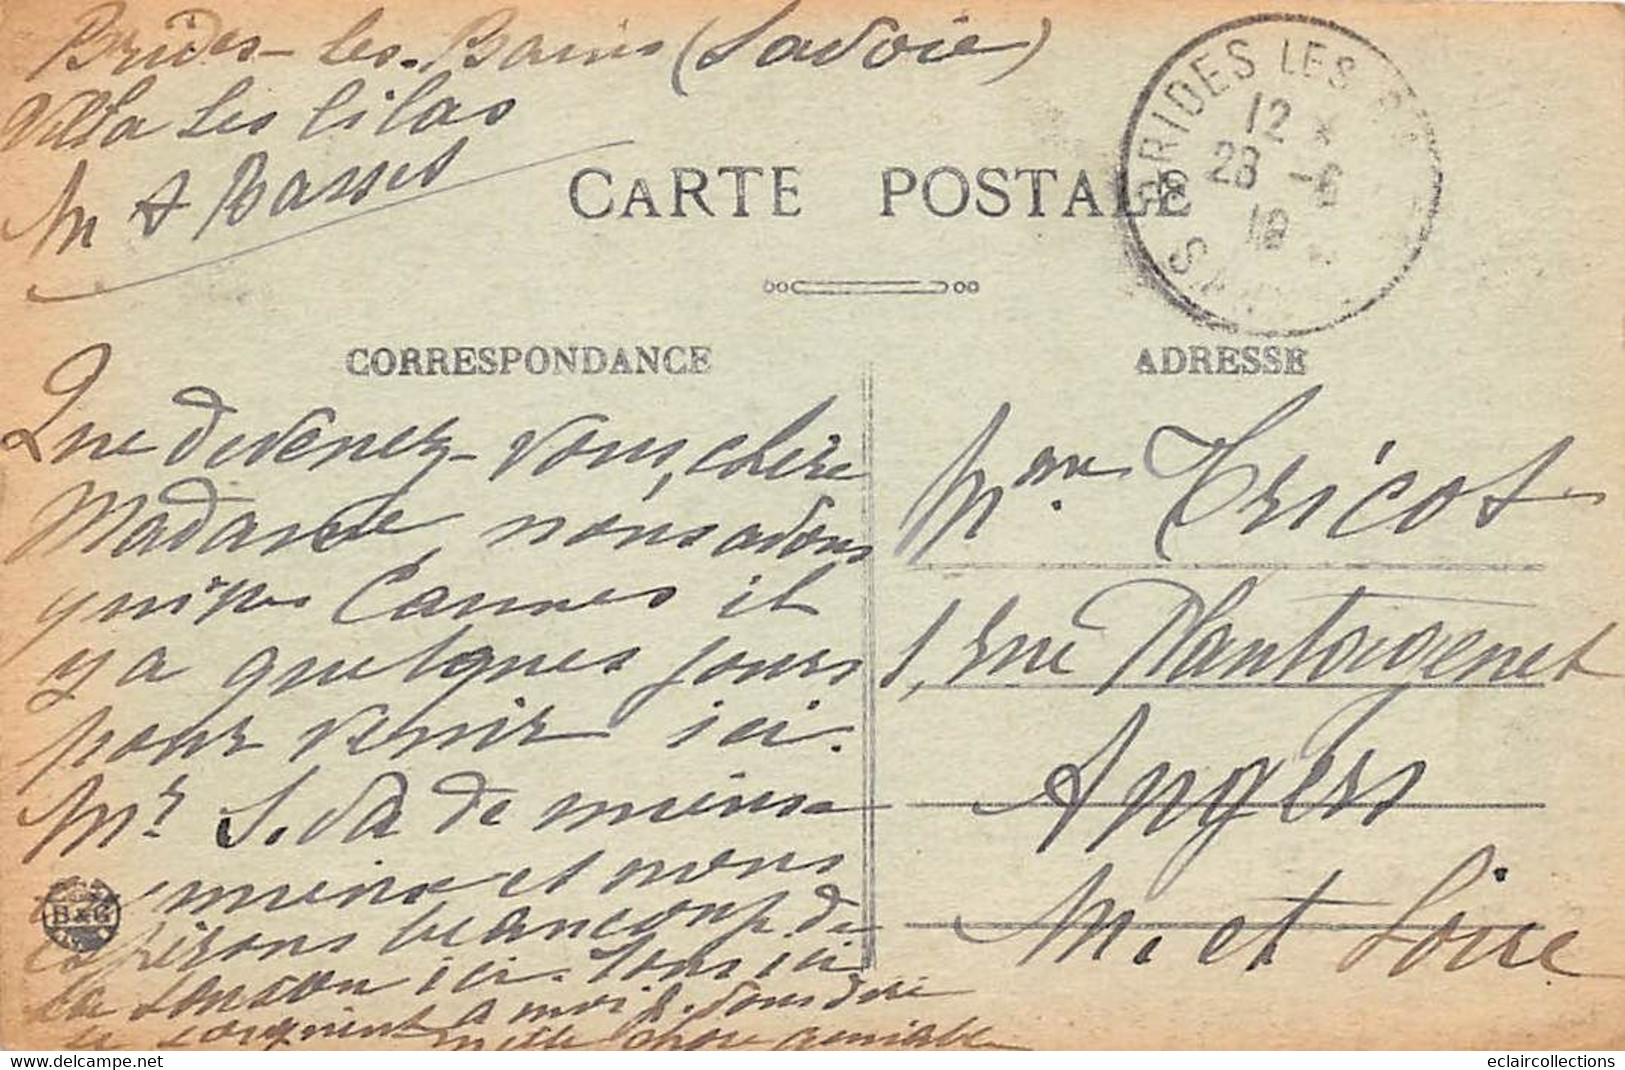 Brides-les-Bains (Savoie)
Villa les lilas
M A Basset
CARTE POSTALE
BRIDES LES BA
12 *
28 -6
18
SAV
CORRESPONDANCE
ADRESSE
Que devenez-vous, chère
Madame, nous avons
Cannes il
y a quelques jours
pour venir ici.
Mr S. va de mieux en
mieux et nous
espérons beaucoup de
la ici. Tous ici
se joignent à moi p. vous dire
mille chose aimable
B & G
Mme Tricot
1, rue Plantagenet
Angers
M. et Loire
eclaircollections
delcampe.net